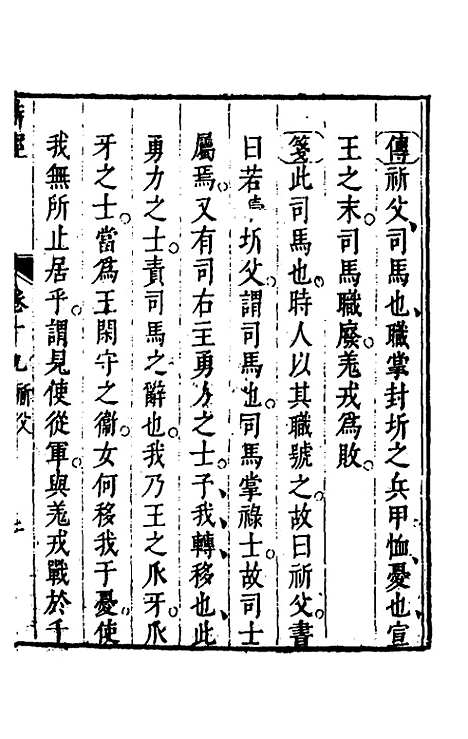 傳祈父、司馬也、職掌封圻之兵甲恤憂也宣
王之末。司馬職廢。羗戎爲敗。
箋此司馬也。時人以其職號之。故曰祈父。書
曰若 圻父。謂司馬也。司馬掌祿士。故司士
屬焉。又有司右主勇力之士。予我、轉移也、此
勇力之士責司馬之辭也。我乃王之爪牙。爪
牙之士。當爲王閑守之衞。女何移我于憂。使
我無所止居乎。謂見使從軍。與羗戎戰於千
詩經 卷十九祈父